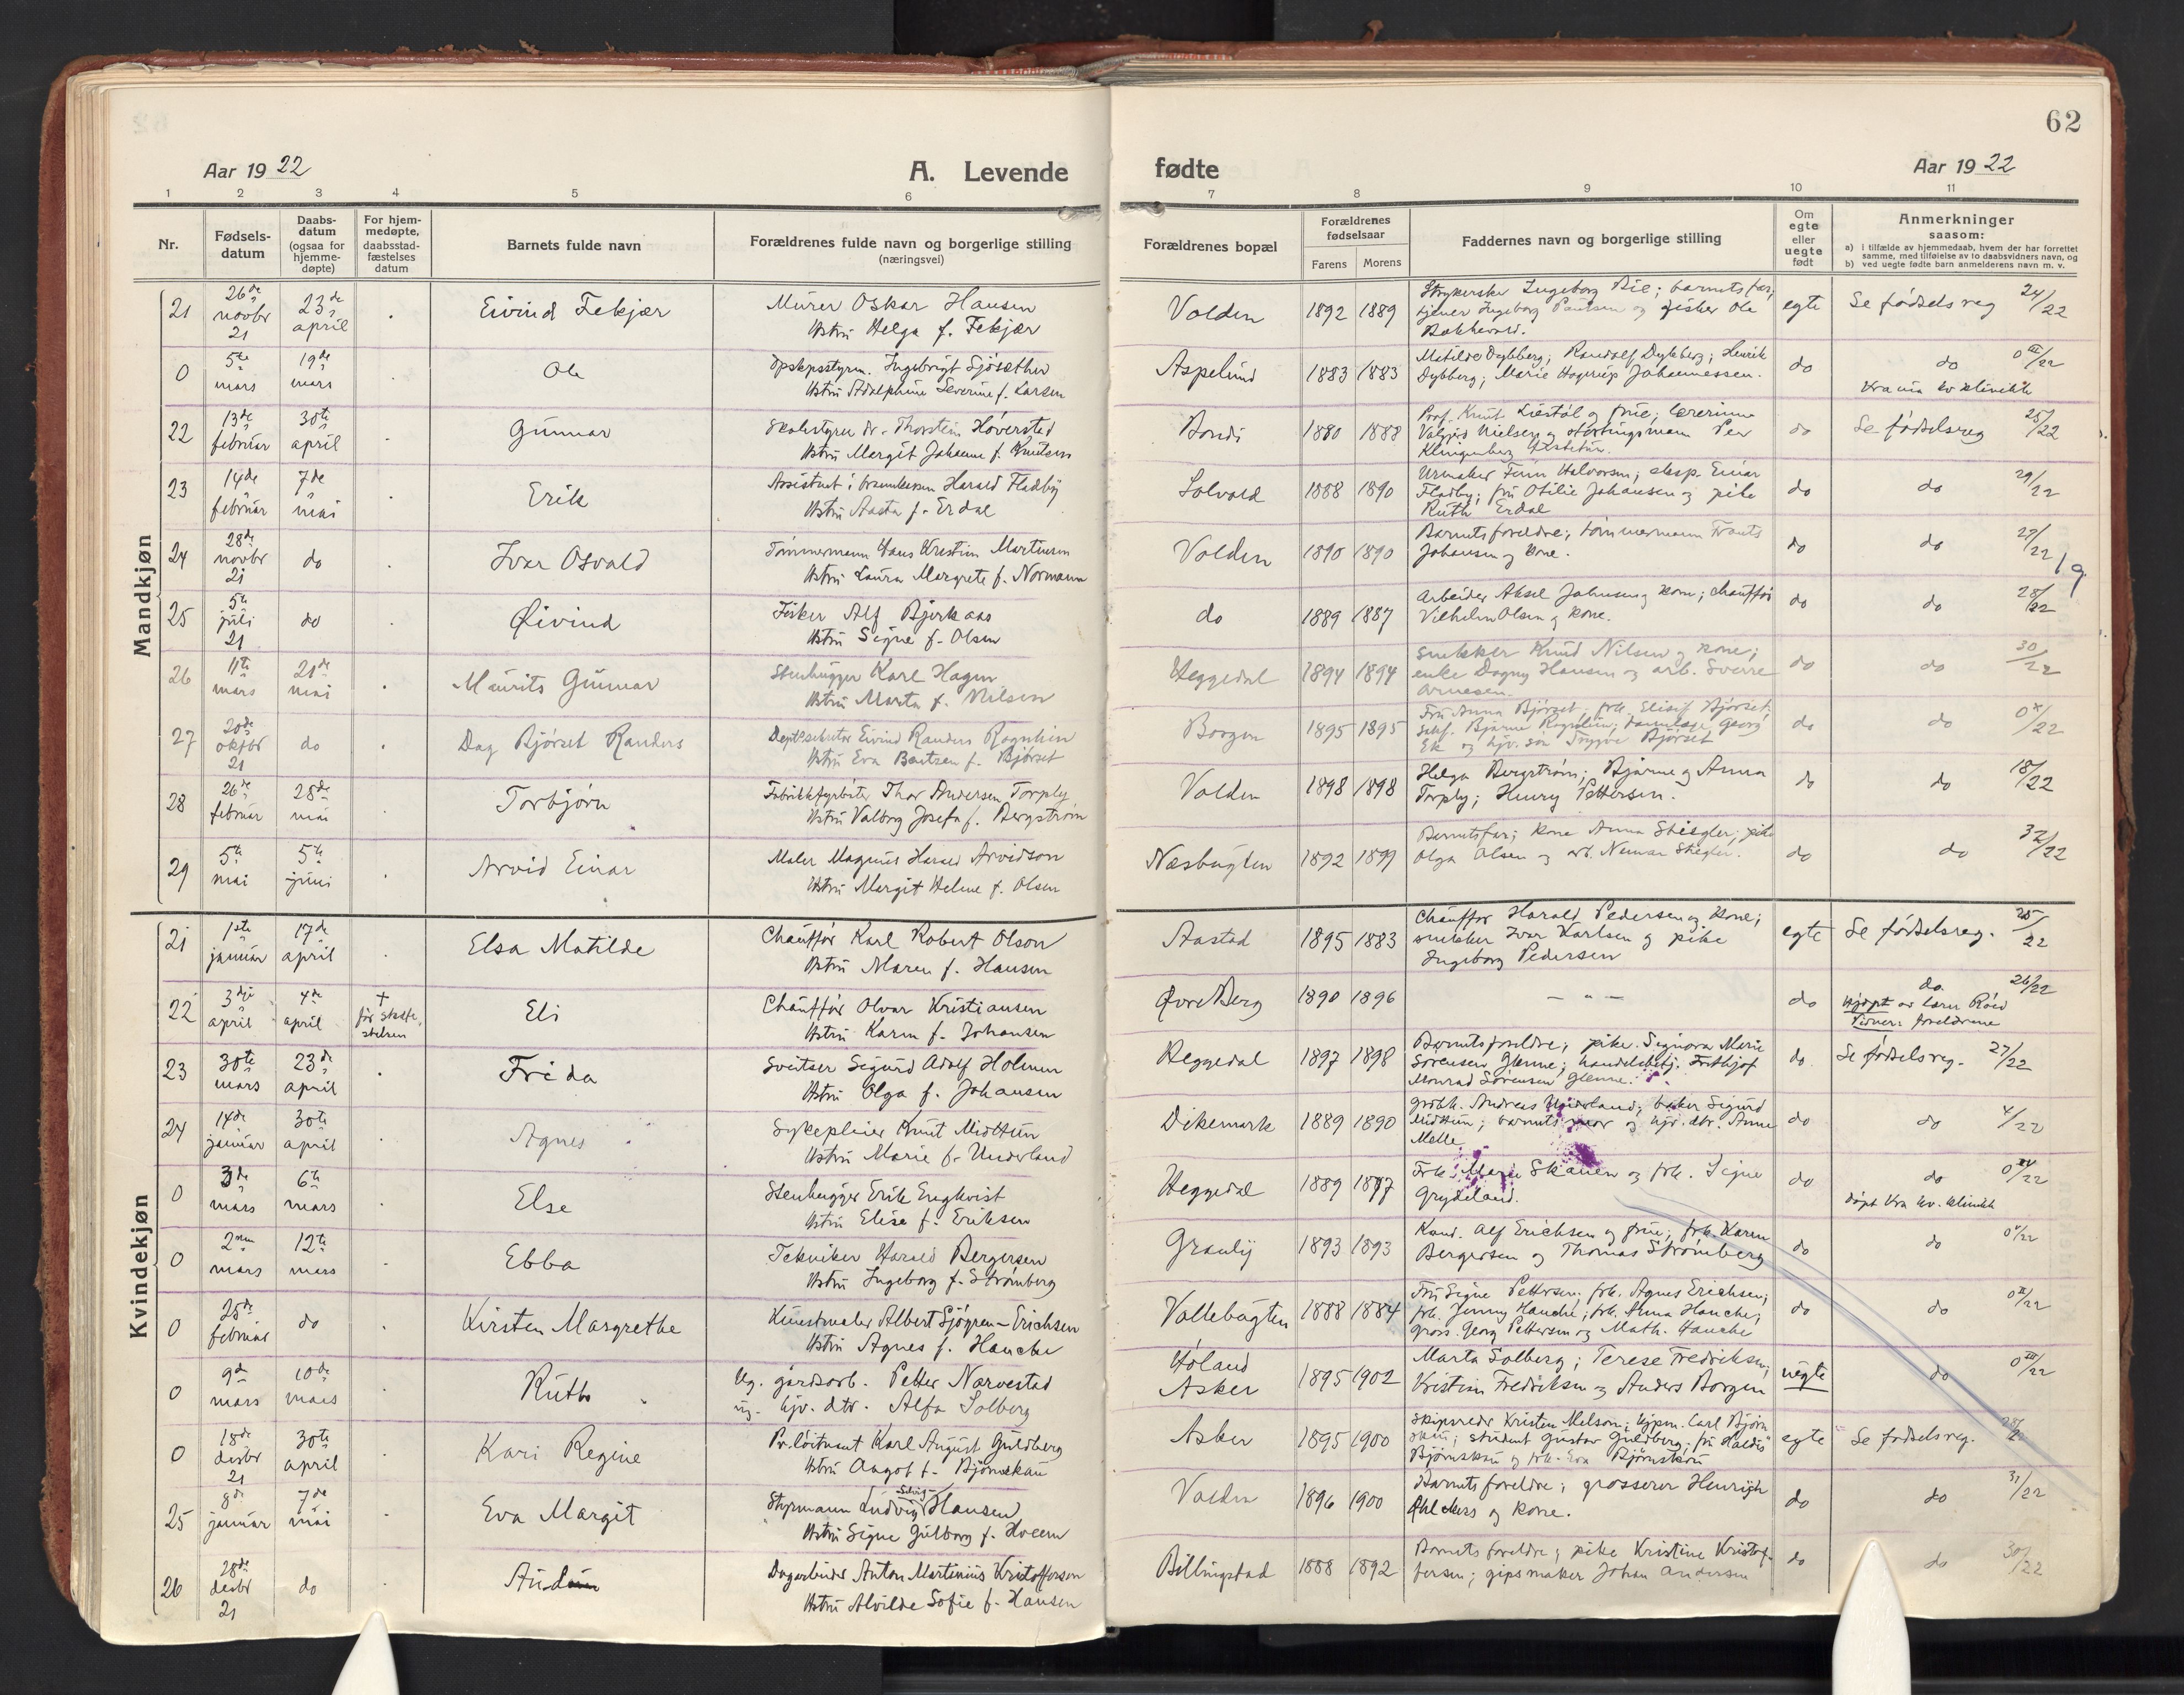 62
Aar 1922
A. Levende
fødte
Aar 1922
1 2 3 4 5 6 7 8 9 10 11
Nr.
Fødsels-
datum
Daabs-
datum
(ogsaa for
hjemme-
døpte)
For hjem-
medøpte,
daabsstad-
fæstelses
datum
Barnets fulde navn
Forældrenes fulde navn og borgerlige stilling
(næringsvei)
Forældrenes bopæl
Forældrenes
fødselsaar
Farens Morens
Faddernes navn og borgerlige stilling
Om
egte
eller
uegte
født
Anmerkninger
saasom:
a) i tilfælde av hjemmedaab, hvem der har forrettet
samme, med tilføielse av to daabsvidners navn, og
b) ved uegte fødte barn anmelderens navn m. v.
Mandkjøn
21 26de novbr 21 23de april Eivind Fekjær
Murer Oskar Hansen
Hstru Helga f. Fekjær
Valden 1892 1889
Strykerske Ingeborg Bie; barnets far;
tjener Ingeborg Paulsen og fisker Ole
Bakkevold.
egte Se fødselsreg 24/22
0 5te mars 19de mars Ole
Ingebrigt Sjøsæther
Hstru Adolphine Severine f. Larsen
Aspelund 1883 1883
Matilde Dybberg; Randolf Dybberg; Henrik
Dybberg; Marie Hagerup Johannessen.
do do 0 III/22
Kra kv. klinikk
22 13de februar 30te april Gunnar
Skolestyrer dr. Thorstein Høverstad
Hstru Margit Johanne f. Knutsen
Bondi 1880 1888
Prof. Knut Liestøl og frue; lærerinne
Valgjerd Nielsen og stortingsmann Peer
Klingenberg Hestetun.
do Se fødselsreg 25/22
23 14de februar 7de mai Erik
Assistent i brannkassen Harald Fladby
Hstru Aasta f. Erdal
Solvold 1888 1890
Urmaker Finn Halvorsen; eksp. Einar
Fladby; fru Otilie Johansen og pike
Ruth Erdal
do do 29/22
24 28de novbr 21 do Ivar Osvald
Tømmermann Hans Kristian Martinsen
Hstru Laura Margrete f. Normann
Valden 1890 1890
Barnets foreldre; tømmermann Frants
Johansen og kone.
do do 27/22
25 5te juli 21 do Øivind
Fisker Alf Bjerkaas
Hstru Signe f. Olsen
do 1889 1887
Arbeider Aksel Johnsen og kone; chauffør
Vilhelm Olsen og kone.
do do 28/22
26 11te mars 21de mai Maurits Gunnar
Stenhugger Karl Hagen
Hstru Marta f. Nilsen
Heggedal 1894 1894
Snekker Knud Nilsen og kone;
enke Dagny Hansen og arb. Sverre
Arnesen.
do do 30/22
27 20de oktbr 21 do Dag Bjørset Randers
Eivind Randers Rognhein
Hstru Eva f. Bjørset
Borgen 1895 1895
Fru Anna Bjørset; frk. Elisif Bjørset;
Bjarne Georg
Ek og hjv. søn Trygve Bjørset
do do 0 X/22
28 26de februar 28de mai Torbjørn
Fabrikkarbeider Thor Andersen Torply
Hstru Valborg Josefa f. Bergstrøm
Valden 1898 1898
Helga Bergstrøm; Bjarne og Anna
Torply; Henry Pettersen.
do do 18/22
29 5te mai 5te juni Arvid Einar
Maler Magnus Harald Arvidson
Hstru Margit Helene f. Olsen
Næsbugten 1892 1899
Barnets far; kone Anna Stiegler; pike
Olga Olsen og arb. Stiegler.
do do 32/22
Kvindekjøn
21 1ste januar 17de april Elsa Matilde
Chauffør Karl Robert Olson
Hstru Maren f. Hansen
Aastad 1895 1883
Chauffør Harald Pedersen og kone;
snekker Ivar Karlsen og pike
Ingeborg Pedersen
egte Se fødselsreg. 25/22
22 3dje april 4de april † før
Eli
Chauffør Olvar Kristiansen
Hstru Karen f. Johansen
Øvre Berg 1890 1896 — " —
do do 26/22
Hjdøpt av
Vidner: foreldrene
23 30te mars 23de april Frida
Sveitser Sigurd Adolf Holmen
Hstru Olga f. Johansen
Heggedal 1897 1898
Barnets foreldre; pike Signora Marie
Sørensen Glenne; handelsbetj. Frithjof
Monrad Sørensen Glenne.
do Se fødselsreg. 27/22
24 14de januar 30te april Agnes
Sykepleier Knut Midttun
Hstru Marie f. Underland
Dikemark 1889 1890
Andreas Underland; baker Sigurd
Midttun; barnets mor og hjv. dtr. Anne
Melle
do do 4/22
0 3de mars 6te mars Else
Stenhugger Erik Engkvist
Hstru Elise f. Eriksen
Heggedal 1889 1887
Frk. Marie Skauen og frk. Signe
Grydeland.
do do
døpt Kra kv. klinikk
0 2nen mars 12te mars Ebba
Tekniker Harald Bergersen
Hstru Ingeborg f. Strømberg
Granly 1893 1893
Kand. Alf Erichsen og frue; frk. Karen
Bergersen og Thomas Strømberg
do do
0 25de februar do Kirsten Margrethe
Kunstmaler Albert Sjögren-Erichsen
Hstru Agnes f. Hauche
Vallebugten 1888 1884
Fru Signe Pettersen; frk. Agnes Erichsen;
frk. Jenny Hauche; frk. Anna Hauche;
gross. Georg Pettersen og Math. Hauche
do do
0 9de mars 10de mars Ruth
Ug. gårdsarb. Petter Narvestad
ug. hjv. dtr. Alfa Solberg
Høland
Asker 1895 1902
Marta Solberg; Terese Fredriksen;
Kristian Fredriksen og Anders Borgen
uegte do 0 III/22
0 18de desbr 21 30te april Kari Regine
Pr. løitnant Karl August Guldberg
Hstru Aagot f. Bjørnskau
Asker 1895 1900
Skipsreder Kristen Melsom; kjpm. Carl Bjørn
skau; student Gustav Guldberg; fru Haldis
Bjørnskau og frk. Eva Bjørnskau
egte Se fødselsreg.
25 8de januar 7de mai Eva Margit
Styrmann Ludvig Hansen
Hstru Signe Gulborg f. Hveem
Valden 1896 1900
Barnets foreldre; grosserer Henrijk
Ahlders og kone.
do do 31/22
26 28de desbr 21 do
Dagarbeider Anton Martinius Kristoffersen
Hstru Alvilde Sofie f. Hansen
Billingstad 1888 1892
Barnets foreldre; pike Kristine Kristof-
fersen; gipsmaker Johan Andersen
do do 30/22